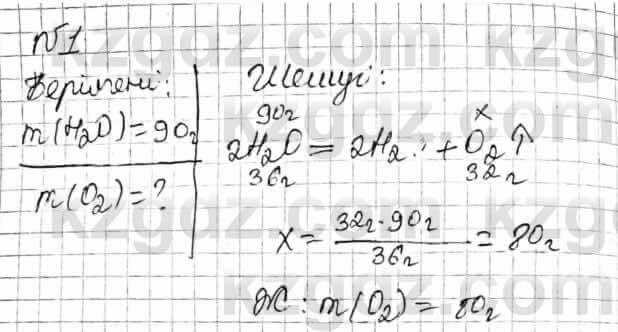 №1
Берілгені:
m(H₂O)=90г
m(O₂)=?
Шешуі:
90г x
2H₂O = 2H₂ + O₂↑
36г 32г
x = 32г·90г / 36г = 80г
Ж: m(O₂) = 80г